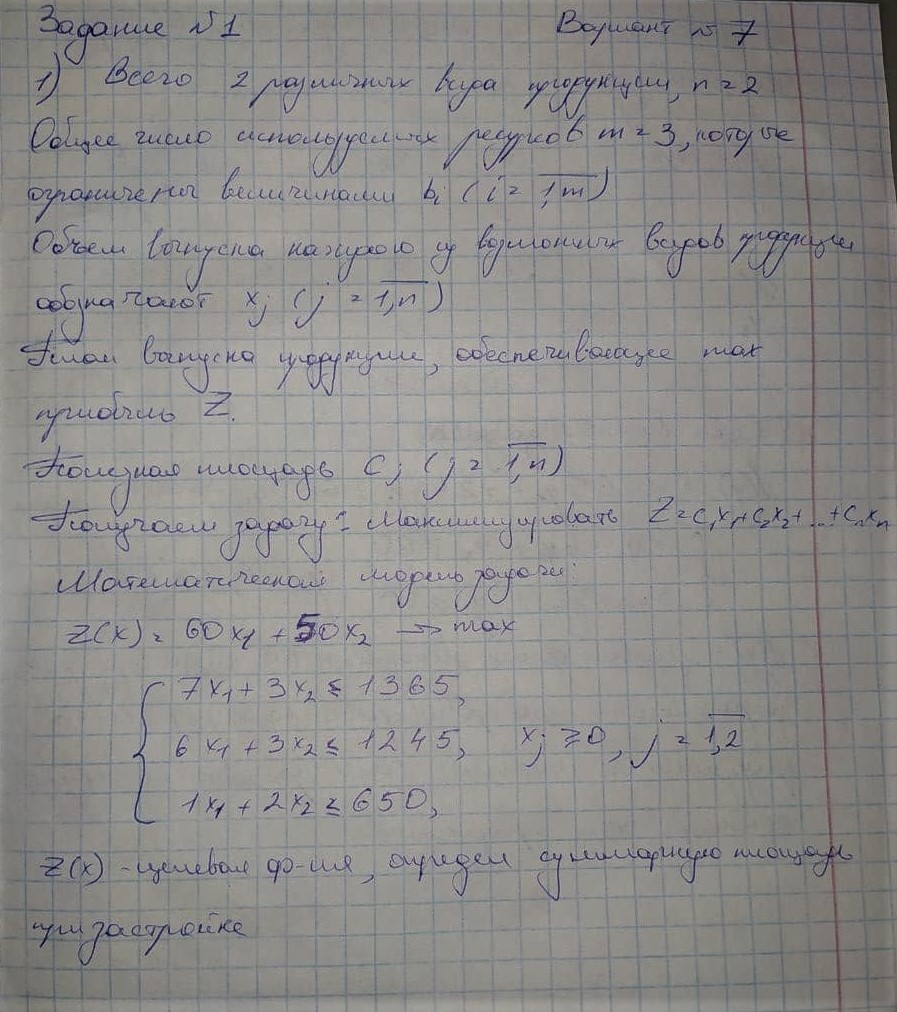 Задание №1 Вариант №7
1) Всего 2 различных вида продукции, n = 2
Общее число используемых ресурсов m = 3, которые
ограничены величинами bi (i = 1,m)
Объем выпуска каждого из возможных видов продукции
обозначают xj (j = 1,n)
План выпуска продукции, обеспечивающее max
прибыль Z.
Полезная площадь Cj (j = 1,n)
Получаем задачу: Максимизировать Z = c₁x₁+c₂x₂+...+cₙxₙ
Математическая модель задачи:
Z(x) = 60x₁ + 50x₂ → max
7x₁ + 3x₂ ≤ 1365,
6x₁ + 3x₂ ≤ 1245, xj ≥ 0, j = 1,2
1x₁ + 2x₂ ≤ 650,
Z(x) - целевая ф-ия, определ суммарную площадь
при застройке